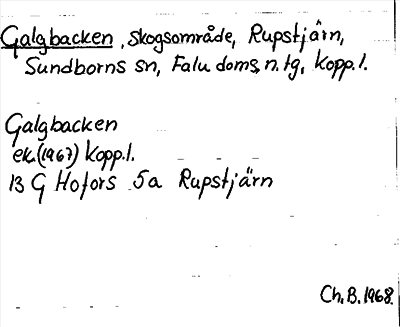 Galgbacken, skogsområde, Rupstjärn,
Sundborns sn, Falu doms. n. tg, Kopp. l.
Galgbacken
ek. (1967) Kopp. l.
13 G Hofors 5a Rupstjärn
Ch. B. 1968.